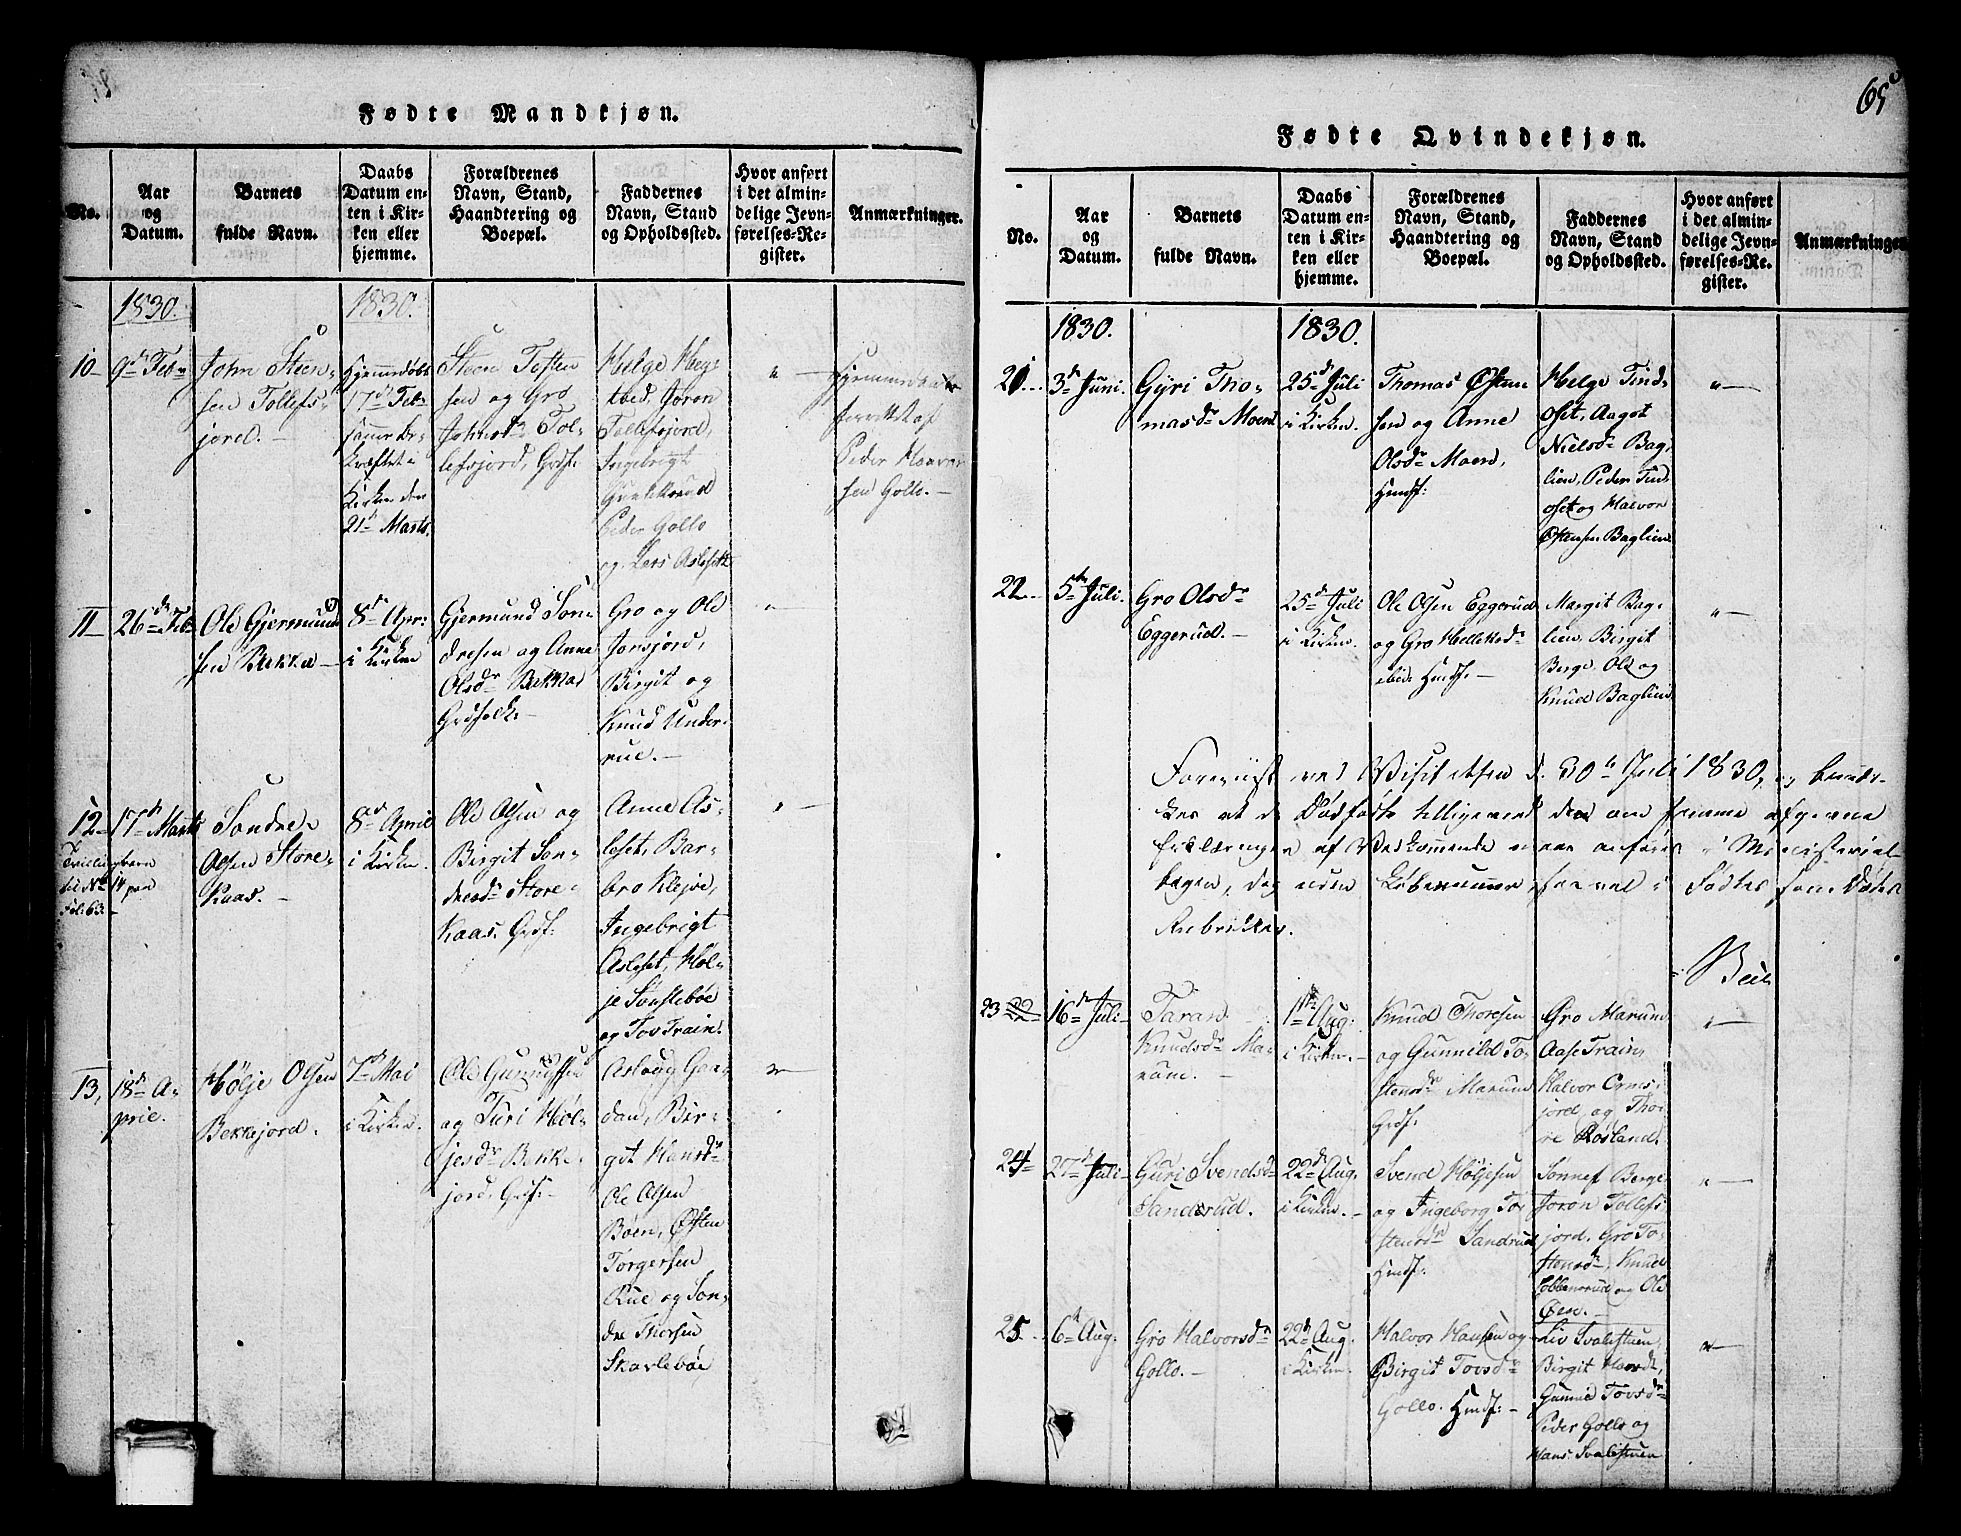 Fødte Mandkjøn.
No.
Aar
og
Datum.
Barnets
fulde Navn.
Daabs
Datum en-
ten i Kir-
ken eller
hjemme.
Forældrenes
Navn, Stand,
Haandtering og
Boepæl.
Faddernes
Navn, Stand
og Opholdssted.
Hvor anført
i det almin-
delige Jevn-
førelses-Re-
gister.
Anmærkninger.
1830.
1830.
10
9de Febr
John Steen-
sen Tollefs-
jord.
Hjemmedøbt
17de Feb:
Kirken den
21de Marts.
Steen Tosten
sen og Gro
Johnsdr Tol-
lefsjord, Grdf.
Helge Heg-
tved, Joron
Tollefsjord,
Ingebrigt
Peder Gollo
og Lers Aslesett
Hjemmedaaben
forrettet af
Peder Haavor
sen Gollo.
11
26de Feb
Ole Gjermund
sen Bekka
8de Apr:
i Kirken
Gjermund Son
dresen og Anne
Olsdr Bekka
Grdfolk
Gro og Ole
Jonsjord,
Birgit og
Knud Under-
rue.
12
17de Marts
Tvillingbarn
til No 14 paa
Fol: 63.
Sondre
Olsen Store-
Kaas.
8de April
i Kirken.
Ole Olsen og
Birgit Son-
dresdr Store-
Kaas. Grdf:
Anne As-
leset, Bar-
bro Klejve,
Ingebrigt
Asleset, Høl-
je Sønstebøe
og Tov Train.
13,
18de A-
pril.
Hølje Olsen
Bekkejord.
7de Mai
i Kirken.
Ole Gunnufsen
og Turi Høl-
jesdr Bekke-
jord, Grdf:
Aslaug Gar-
dan, Bir-
git Hansdr
Ole Olsen
Bøen, Østen
Torgersen
Rue og Son-
dre Thorsen
Skarlebøe
65
Fødte Qvindekjøn.
No.
Aar
og
Datum.
Barnets
fulde Navn.
Daabs
Datum en-
ten i Kir-
ken eller
hjemme.
Forældrenes
Navn, Stand,
Haandtering og
Boepæl.
Faddernes
Navn, Stand
og Opholdssted.
Hvor anført
i det almin-
delige Jevn-
førelses-Re-
gister.
Anmærkninger
1830.
1830.
21
3de Juni.
Gyri Tho-
masdr Moen
25de Juli
i Kirken.
Thomas Østen
sen og Anne
Olsdr Moen,
Hmdf:
Helge Tind-
oset, Aagot
Nielsdr Bag-
lien, Peder Tind-
oset og Halvor
Østensen Baglien
22
5te Juli.
Gro Olsdr
Eggerud.
25de Juli
i Kirken.
Ole Olsen Eggerud
og Gro Helleksdr
ibid: Hmdf:
Margit Bag-
lien, Birgit
Berge, Ole og
Knud Baglien
Foreviist ved Visitatsen d. 30te Juli 1830, og bemær-
kes at de Dødfødte tilligemed den om samme afgivne
Erklæringen af Vedkommende maa anføres i Ministerial-
bogen, dog uden Løbenummer, saavel i Fødtes som Dødes
Rubrikker.
23 22
16de Juli
Taran
Knudsdr Ma-
rum.
1te Aug:
i Kirken.
Knud Thoresen
og Gunnild To-
stensdr Marum
Grdf.
Gro Marum
Aase Train,
Halvor Orms-
jord og Tho-
re Rosland.
24
27de Juli
Guri Svendsdr
Sandsrud.
22de Aug.
i Kirken.
Svend Høljesen
og Ingeborg To-
stensdr Sandrud
Hmdf:
Sønnef Berge
Joron Tollefs-
jord. Gro To-
stensdr, Knud
Tobbensrud og Ole
Øen.
25
6te Aug:
Gro Halvorsdr
Gollo.
22de Aug.
i Kirken.
Halvor Hansen og
Birgit Tovsdr
Gollo. Hmdf:
Liv Svalestuen
Birgit Hansdr,
Gunnild Tovsdr
Peder Gollo og
Hans Svalestuen